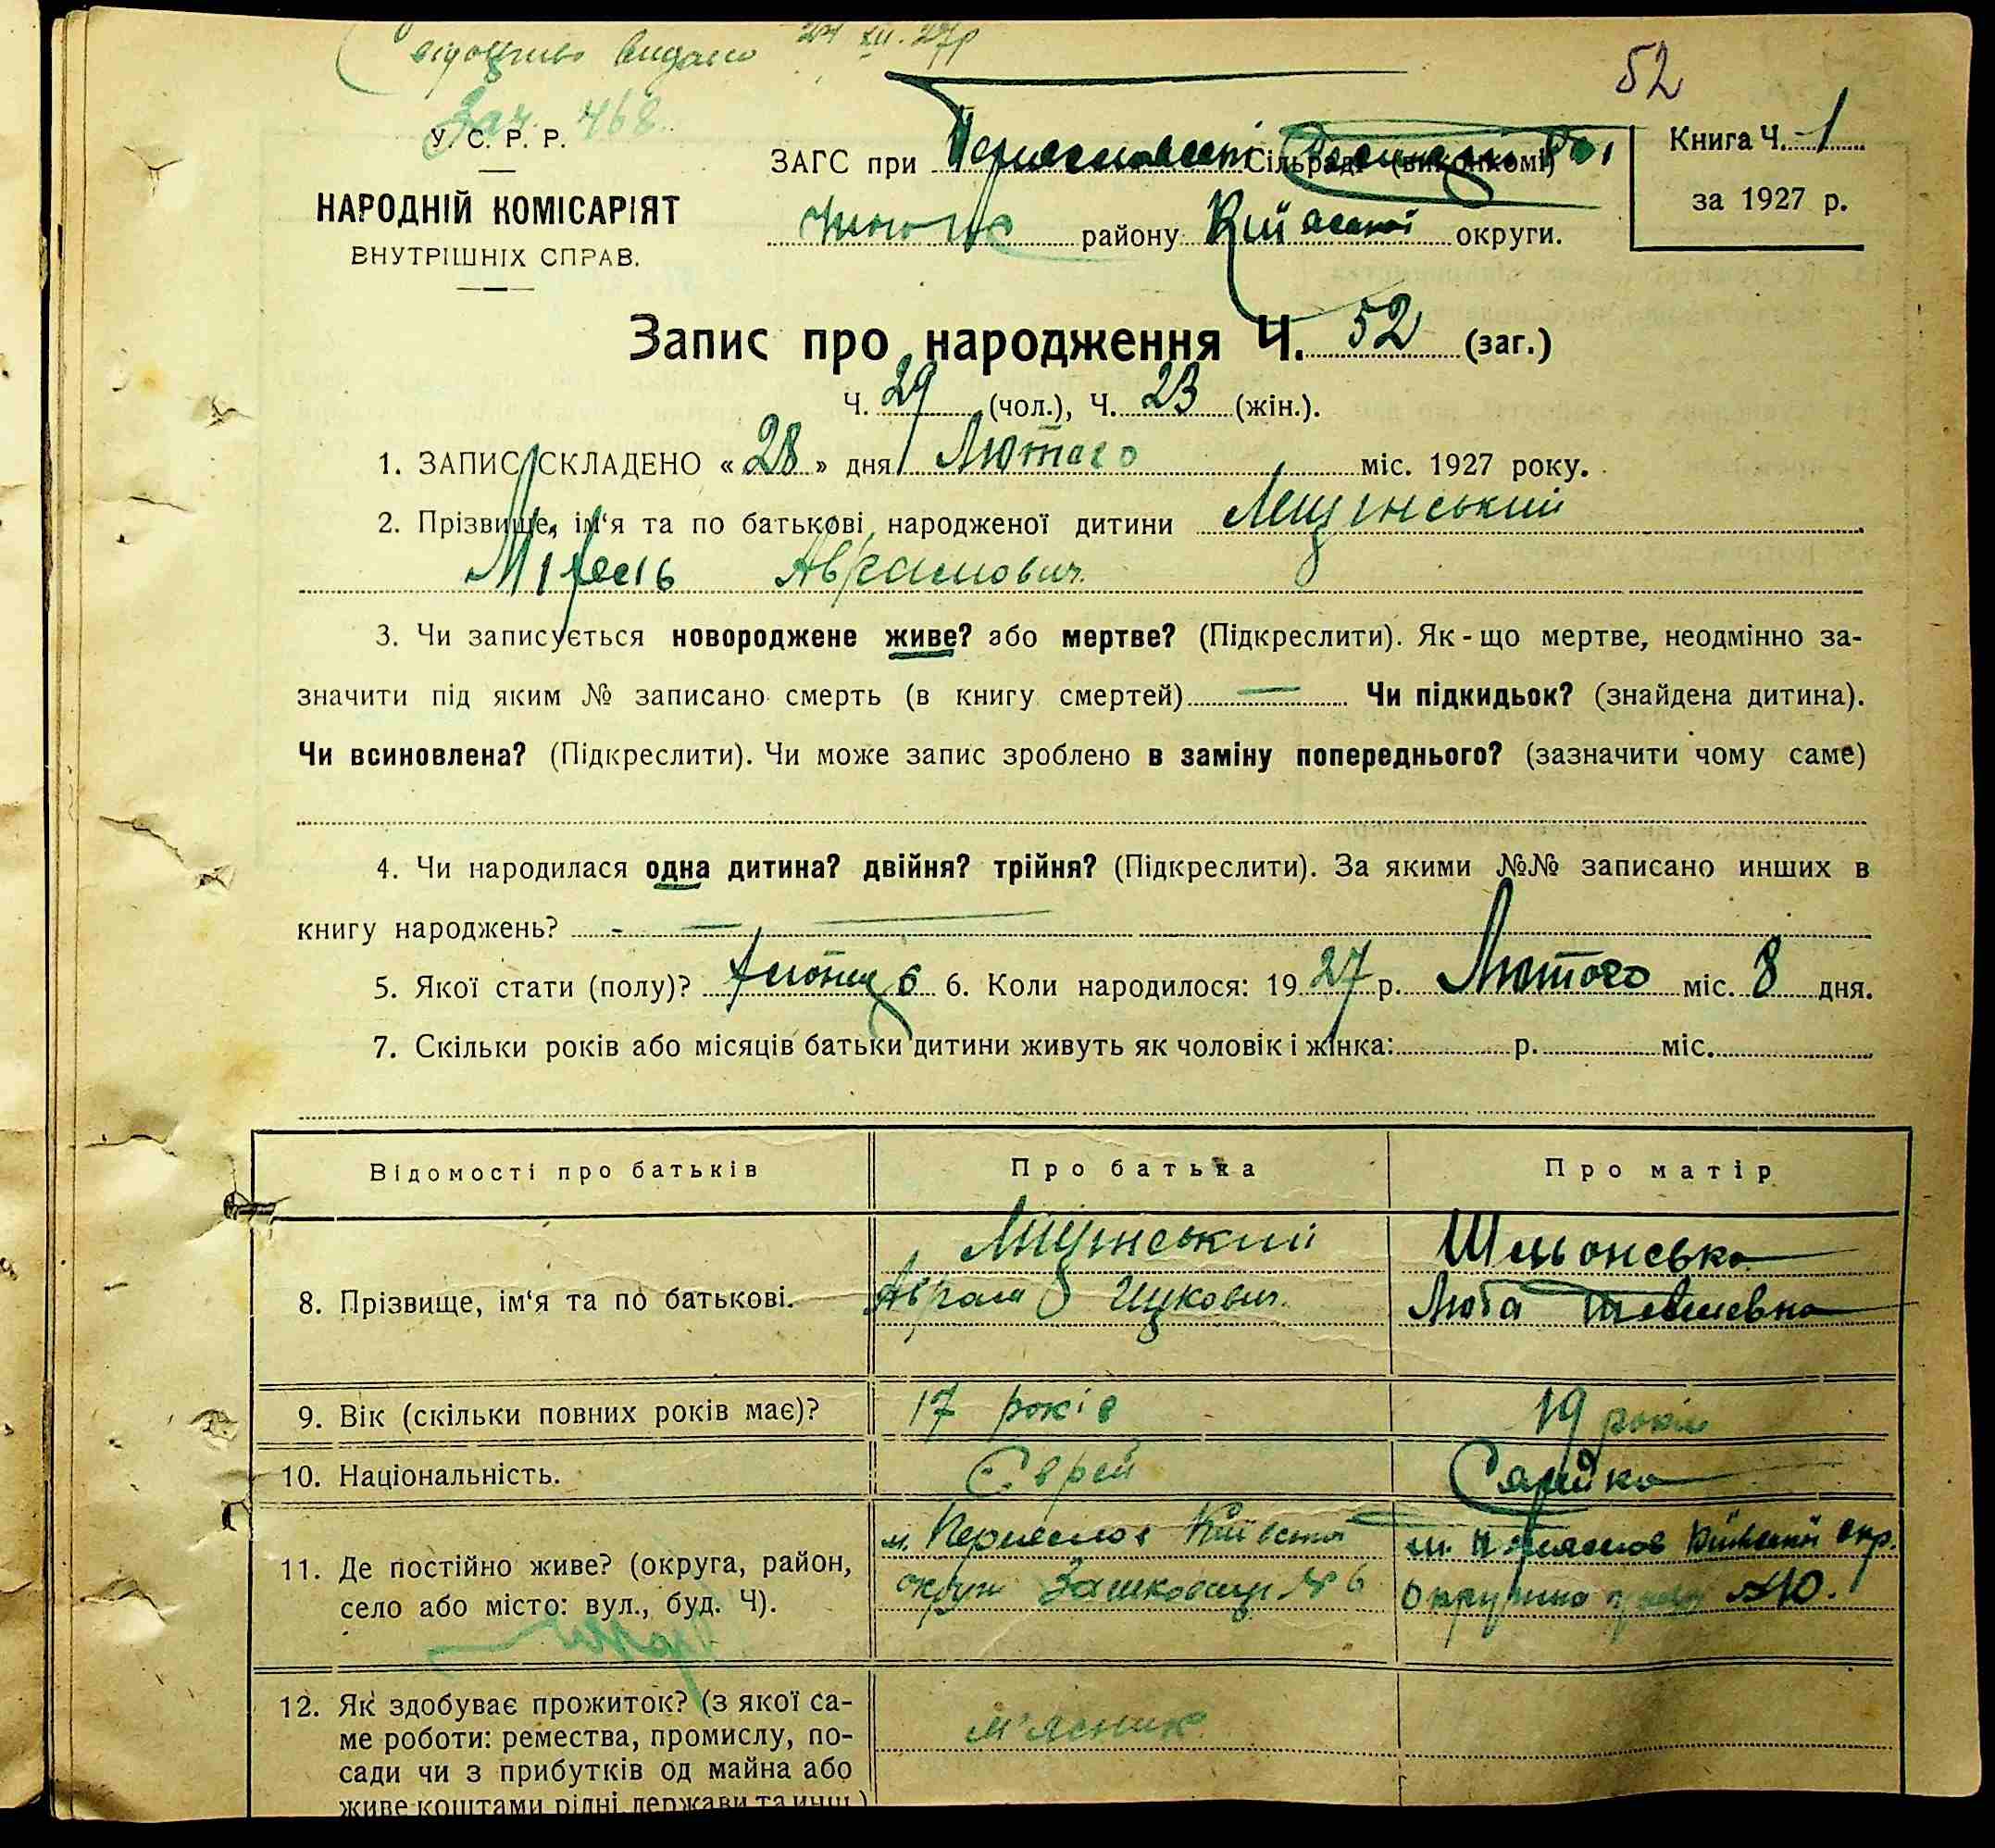 видано 24 XII. 27р
52
Зач. 468
У. С. Р. Р.
НАРОДНІЙ КОМІСАРІЯТ
ВНУТРІШНІХ СПРАВ.
ЗАГС при Сільраді (виконкомі)
району Київської округи.
Книга Ч. 1
за 1927 р.
Запис про народження Ч. 52 (заг.)
Ч. 29 (чол.), Ч. 23 (жін.).
1. ЗАПИС СКЛАДЕНО «28» дня Лютого міс. 1927 року.
2. Прізвище, ім'я та по батькові народженої дитини
Аврамович
3. Чи записується новороджене живе? або мертве? (Підкреслити). Як-що мертве, неодмінно за-
значити під яким № записано смерть (в книгу смертей) — Чи підкидьок? (знайдена дитина).
Чи всиновлена? (Підкреслити). Чи може запис зроблено в заміну попереднього? (зазначити чому саме)
4. Чи народилася одна дитина? двійня? трійня? (Підкреслити). За якими №№ записано инших в
книгу народжень? - — —
5. Якої стати (полу)? 6. Коли народилося: 1927 р. Лютого міс. 8 дня.
7. Скільки років або місяців батьки дитини живуть як чоловік і жінка: р. міс.
Відомості про батьків Про батька Про матір
8. Прізвище, ім'я та по батькові.
Аврам Ицкович
Люба
9. Вік (скільки повних років має)? 17 років 19 років
10. Національність. Єврей Єврейка
11. Де постійно живе? (округа, район,
село або місто: вул., буд. Ч).
м. Переяслов Київської
округи № 6
м. Переяслов Київської окр.
№10.
12. Як здобуває прожиток? (з якої са-
ме роботи: ремества, промислу, по-
сади чи з прибутків од майна або
живе коштами рідні, держави та инш.)
м'ясник